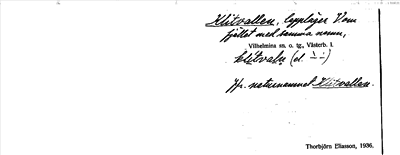 Klitvallen, lappläger Vom
fjället med samma namn,
Vilhelmina sn. o. tg., Västerb. l.
klitvaln (el.
Jfr. naturnamnet Klitvallen.
Thorbjörn Eliasson, 1936.